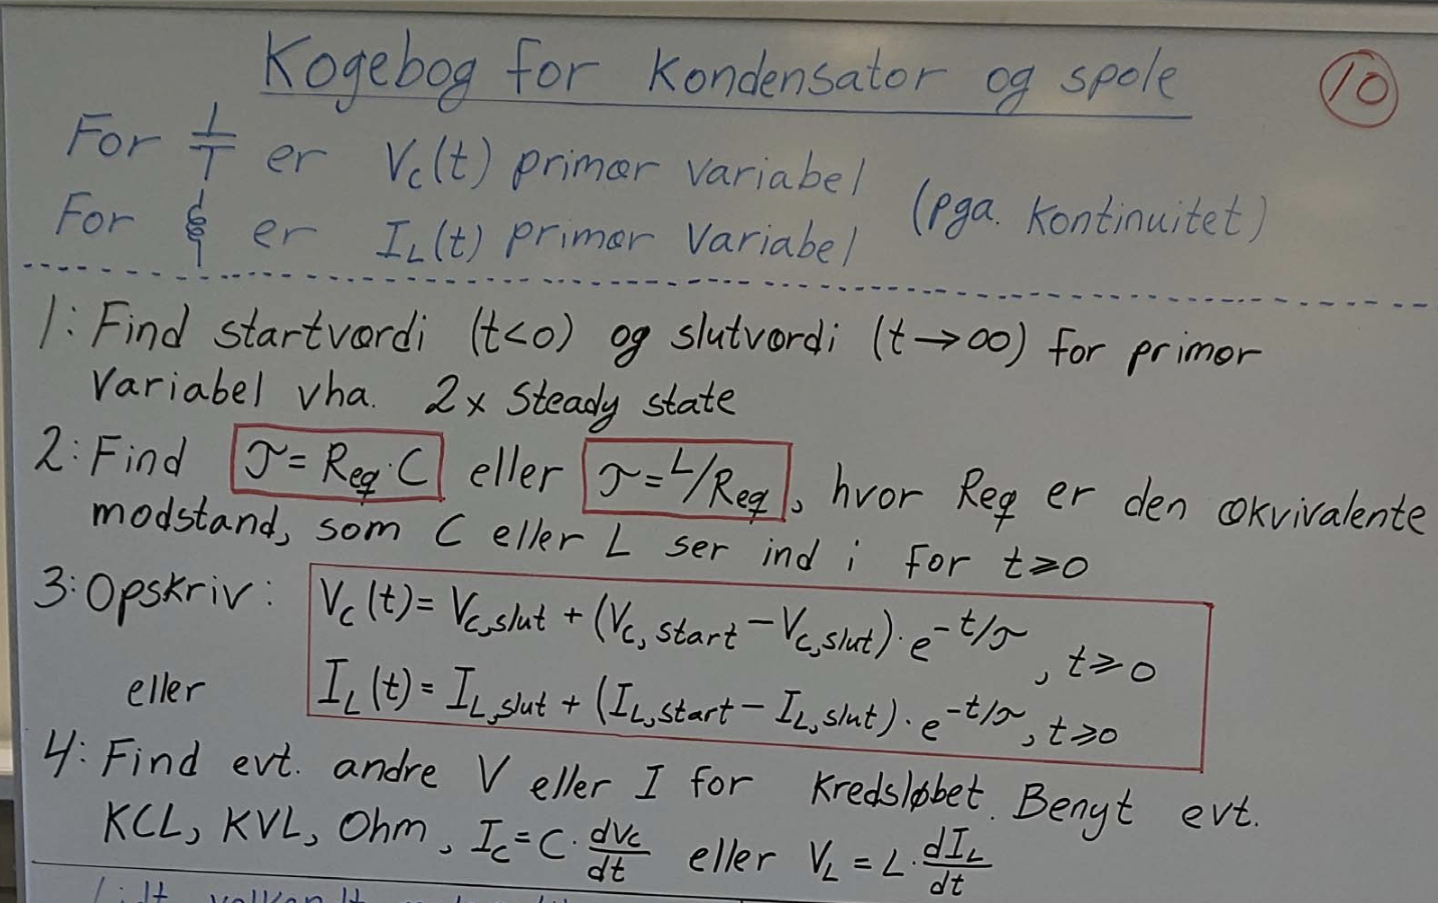 Kogebog for kondensator og spole
10
For er Vc(t) primær variabel
For er IL(t) primær variabel
(pga. kontinuitet)
1: Find startværdi (t<0) og slutværdi (t→∞) for primær
variabel vha. 2x steady state
2: Find τ = Req·C eller τ = L/Req, hvor Req er den ækvivalente
modstand, som C eller L ser ind i for t≥0
3: Opskriv: Vc(t) = Vc,slut + (Vc,start − Vc,slut)·e^-t/τ, t≥0
eller IL(t) = IL,slut + (IL,start − IL,slut)·e^-t/τ, t≥0
4: Find evt. andre V eller I for kredsløbet. Benyt evt.
KCL, KVL, Ohm, Ic = C·dVc/dt eller VL = L·dIL/dt